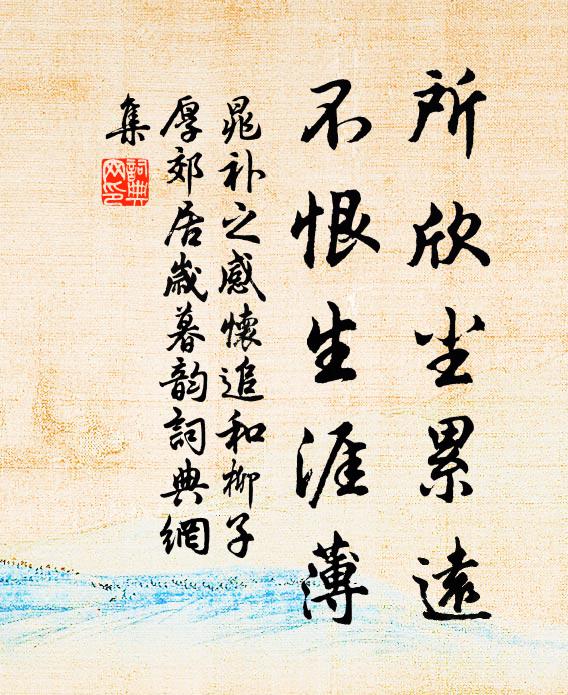 所欣尘累遠
不恨生涯薄
晁补之感懷追和柳子
厚郊居歲暮韵詞典網
集
詞典
网印